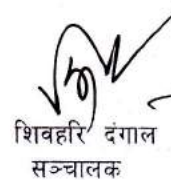 शिवहरि दंगाल
सञ्चालक